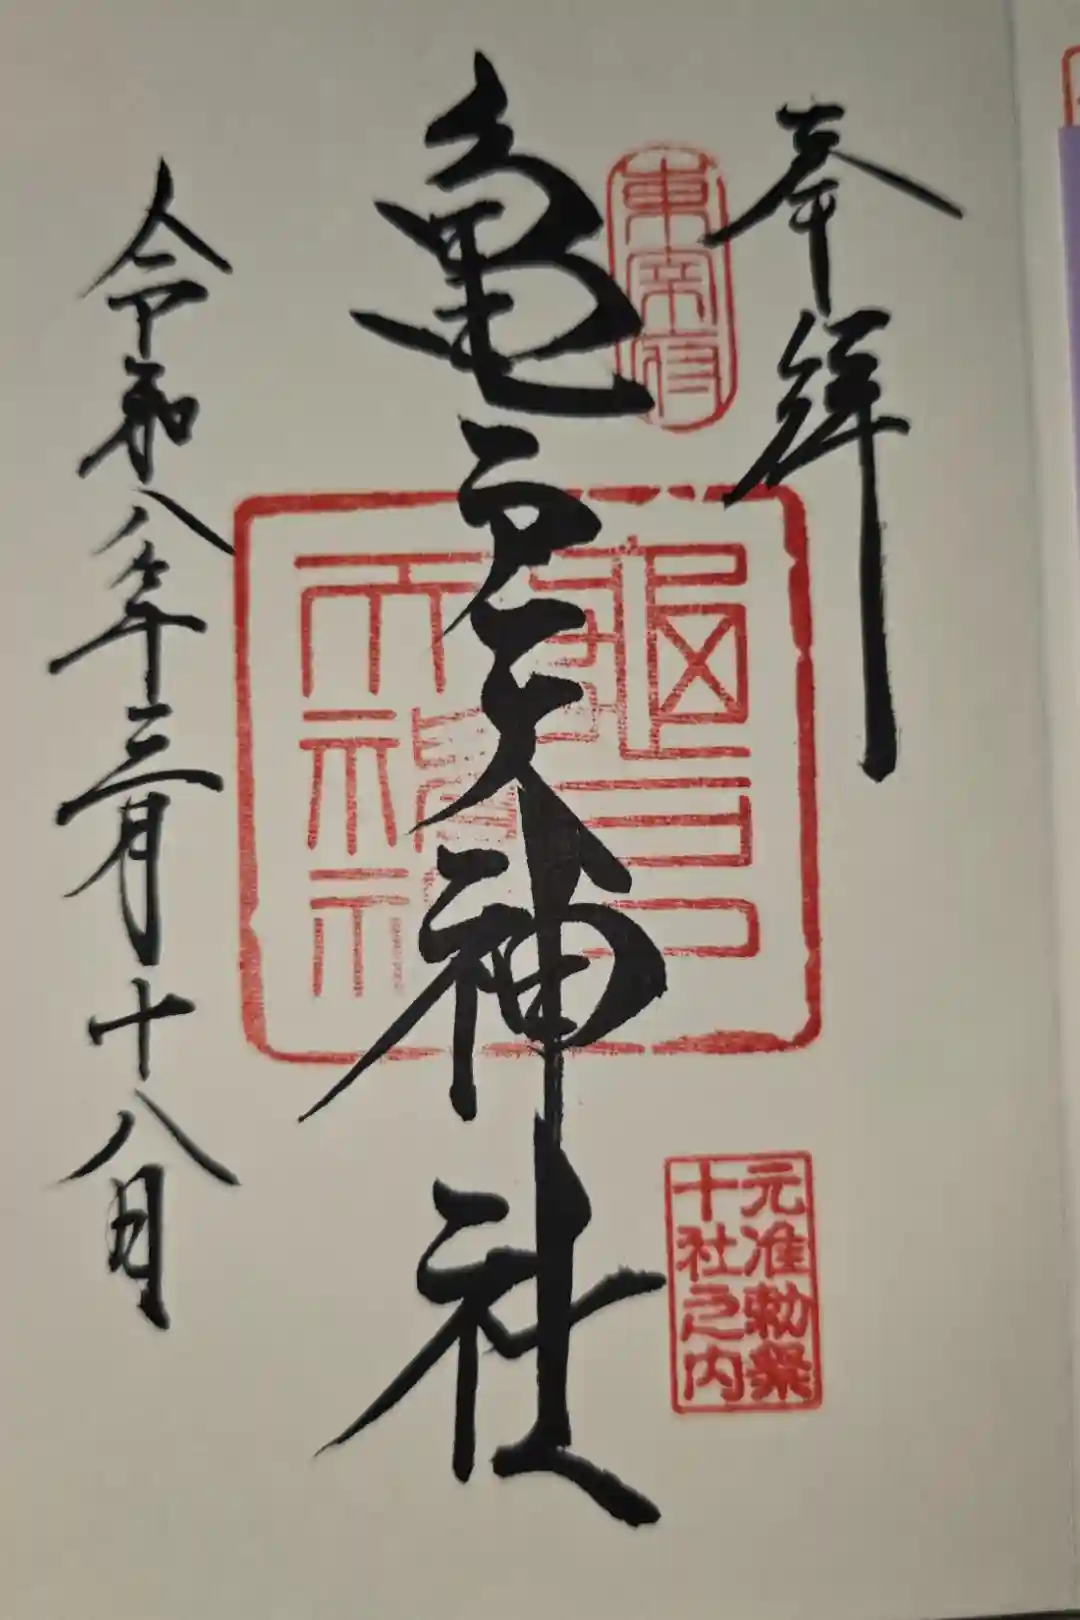 奉拝
東宰府
亀戸天神社
亀戸天神社
元准勅祭
十社之内
令和八年三月十八日